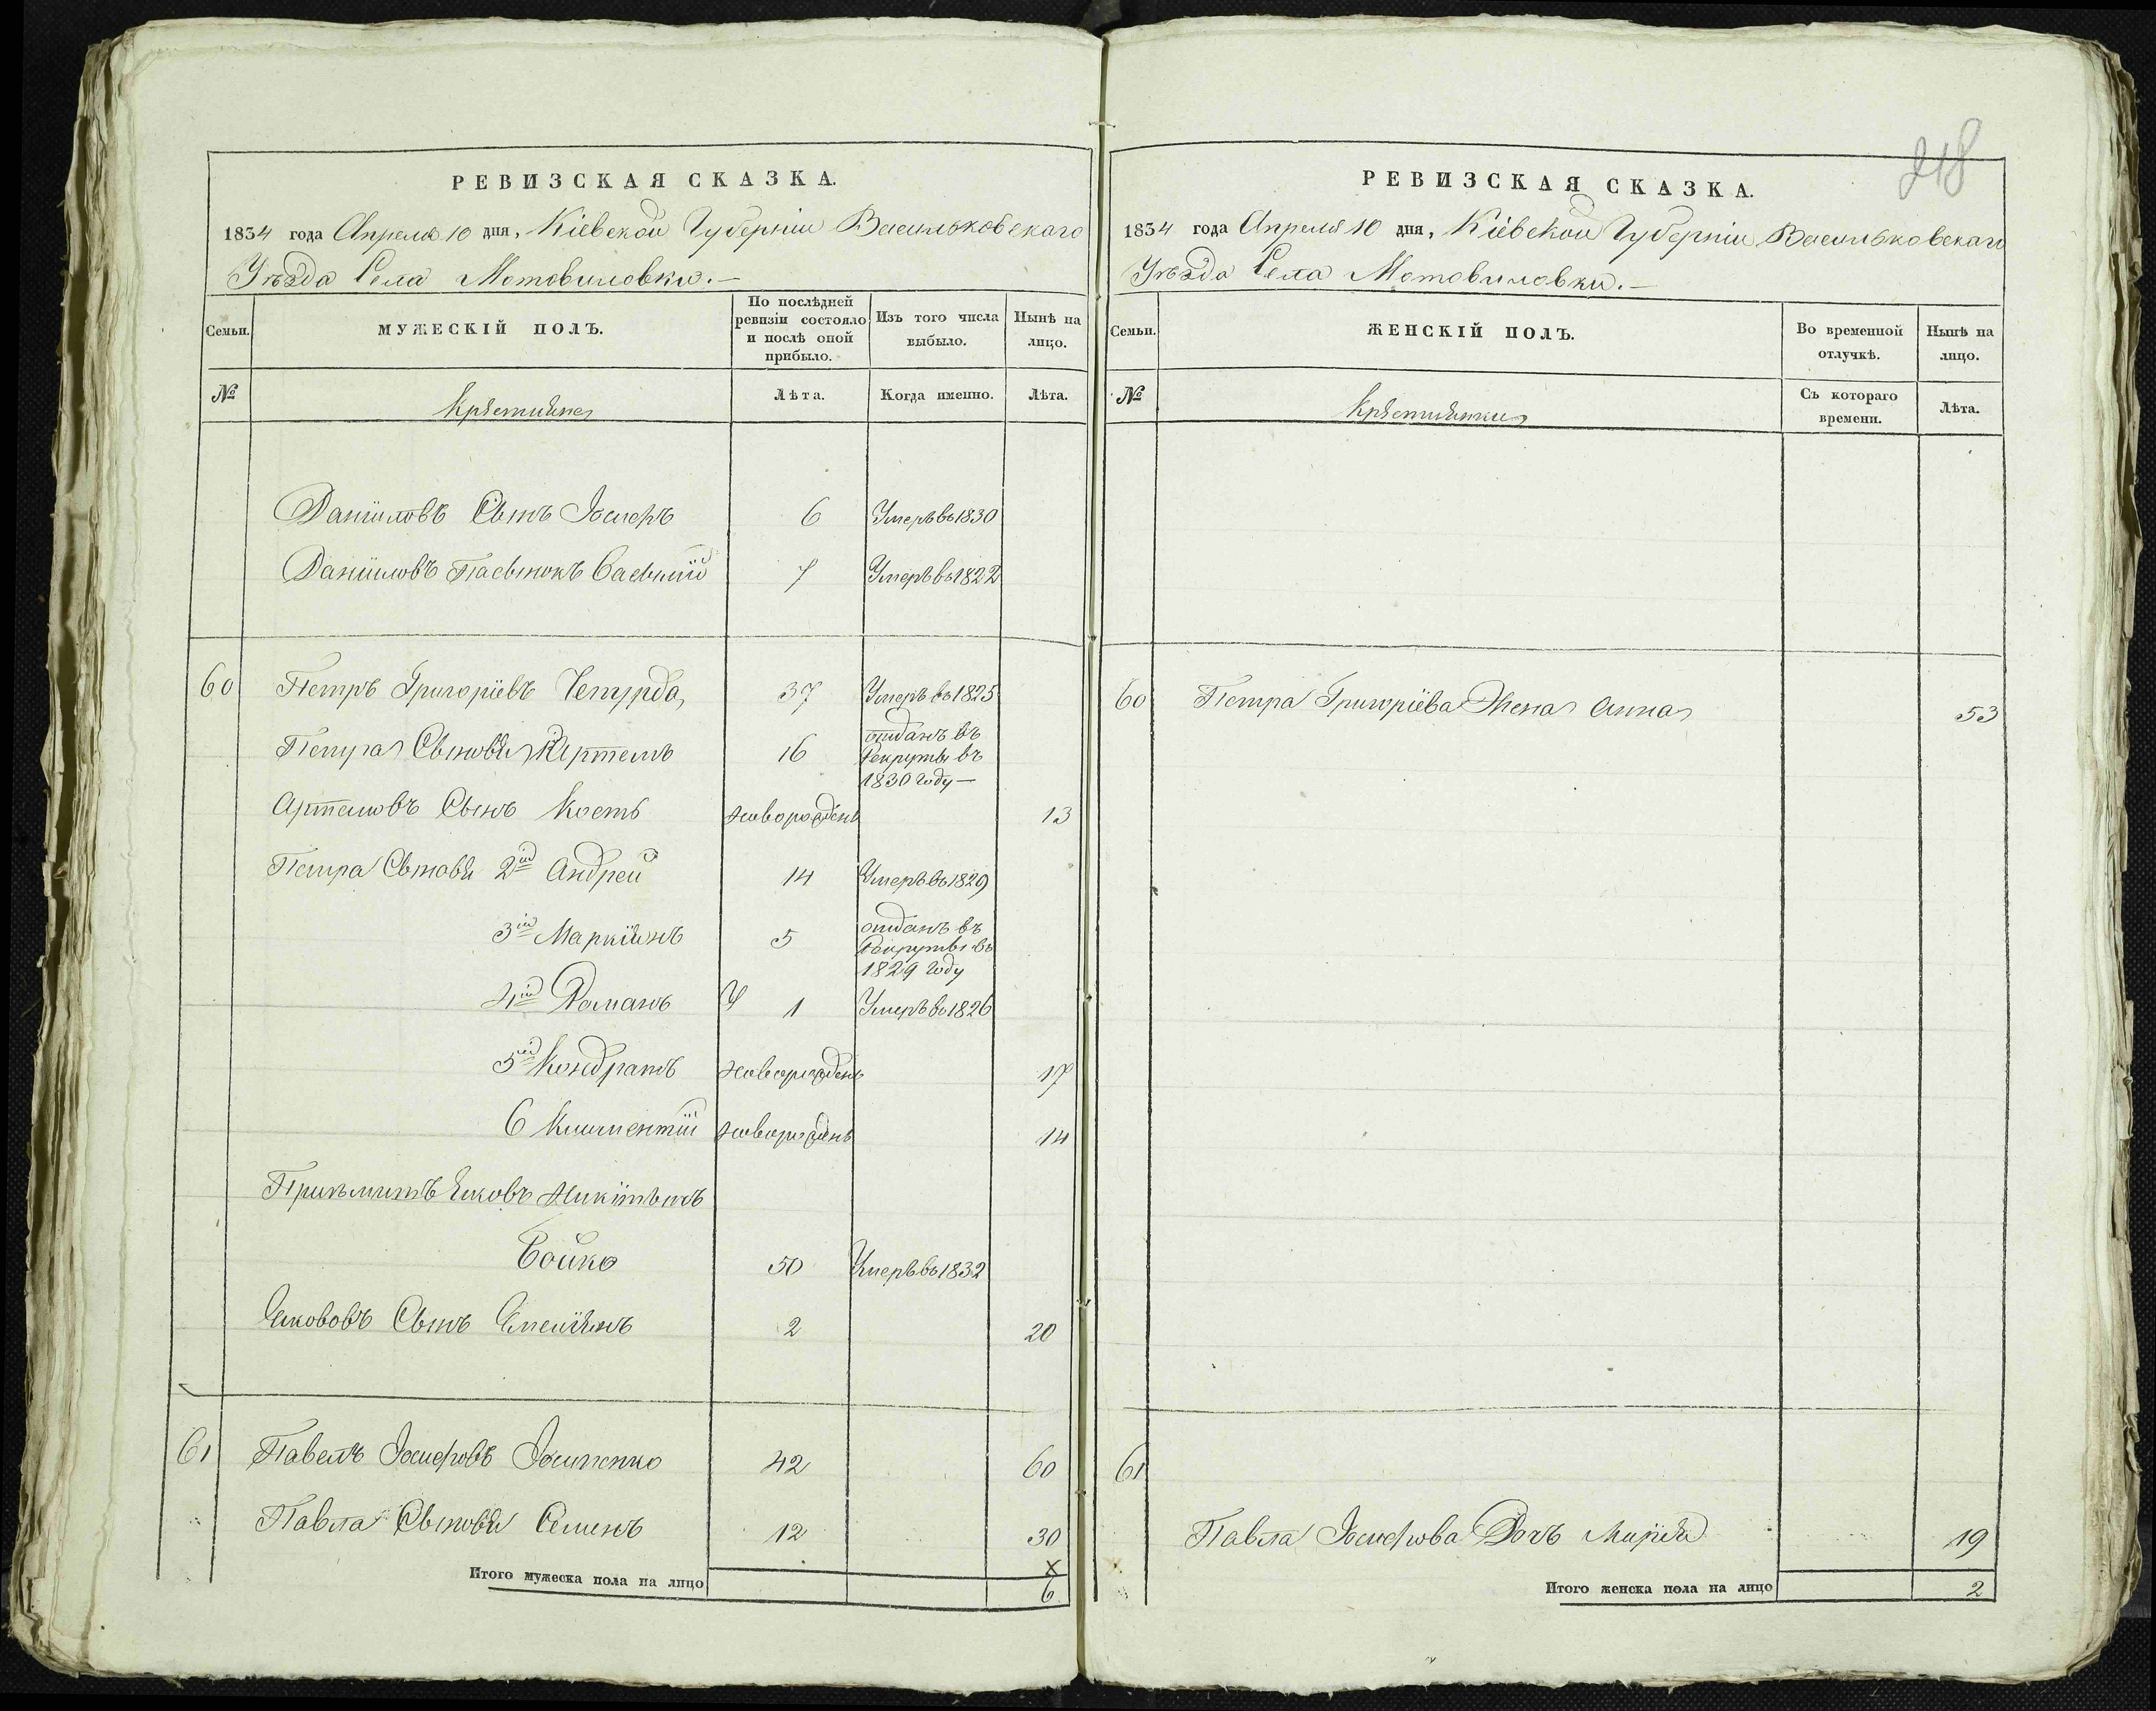 218
РЕВИЗСКАЯ СКАЗКА.
1834 года Апреля 10 дня, Кіевской Губерніи Васильковскаго
Уѣзда Села Мотовиловки.—
Семьи.
МУЖЕСКІЙ ПОЛЪ.
По послѣдней
ревизіи состояло
и послѣ оной
прибыло.
Изъ того числа
выбыло.
Нынѣ на
лицо.
№
Крестяне
Лѣта.
Когда именно.
Лѣта.
Даниловъ Сынъ Іосифъ 6 Умеръ въ 1830
Даниловъ Пасынокъ Василій 7 Умеръ въ 1822
60 Петръ Григоріевъ Чепурда 37 Умеръ въ 1825
Петра Сыновя Артемъ 16 отданъ въ
Рекруты въ
1830 году —
Артемовъ Сынъ Кость новорожденъ 13
Петра Сыновя 2й Андрей 14 Умеръ въ 1829
3й Маркіянъ 5 отданъ въ
Рекруты въ
1829 году
4й Романъ 1 Умеръ въ 1826
5й Кондратъ новорожденъ 17
6 Климентій новорожденъ 14
Яковъ Никитинъ
Бойко 50 Умеръ въ 1832
Якововъ Сынъ Емеліянъ 2 20
61 Павелъ Іосифовъ Іосипенко 42 60
Павла Сыновя Семенъ 12 30
х
Итого мужеска пола на лицо 6
РЕВИЗСКАЯ СКАЗКА.
1834 года Апреля 10 дня, Кіевской Губерніи Васильковскаго
Уѣзда Села Мотовиловки.—
Семьи.
ЖЕНСКІЙ ПОЛЪ.
Во временной
отлучкѣ.
Нынѣ на
лицо.
№
Крестянки
Съ котораго
времени.
Лѣта.
60 Петра Григоріева Жена Анна 53
61
Павла Іосифова Дочь Марія 19
Итого женска пола на лицо 2